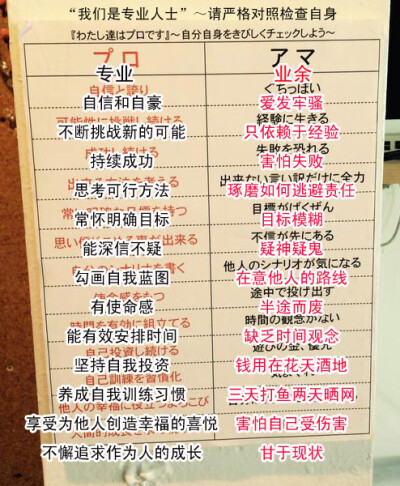 “我们是专业人士”～请严格对照检查自身
『わたし達はプロです』～自分自身をきびしくチェックしよう～
プロ アマ
专业 业余
自信と誇り ぐちっぽい
自信和自豪 爱发牢骚
可能性に挑戦し続ける 経験に生きる
不断挑战新的可能 只依赖于经验
成功し続ける 失敗を恐れる
持续成功 害怕失败
出来る方法を考える 出来ない言い訳だけに全力
思考可行方法 琢磨如何逃避责任
目標を持つ 目標がばくぜん
常怀明确目标 目标模糊
事が出来る 不信が先にある
能深信不疑 疑神疑鬼
自分のシナリオを書く 他人のシナリオが気になる
勾画自我蓝图 在意他人的路线
使命感をもつ 途中で投げ出す
有使命感 半途而废
時間を有効に組立てる 時間の観念がない
能有效安排时间 缺乏时间观念
自己投資し続ける
坚持自我投资 钱用在花天酒地
自己訓練を習慣化
养成自我训练习惯 三天打鱼两天晒网
他人の幸福に役立つよろこび
享受为他人创造幸福的喜悦 害怕自己受伤害
不懈追求作为人的成长 甘于现状